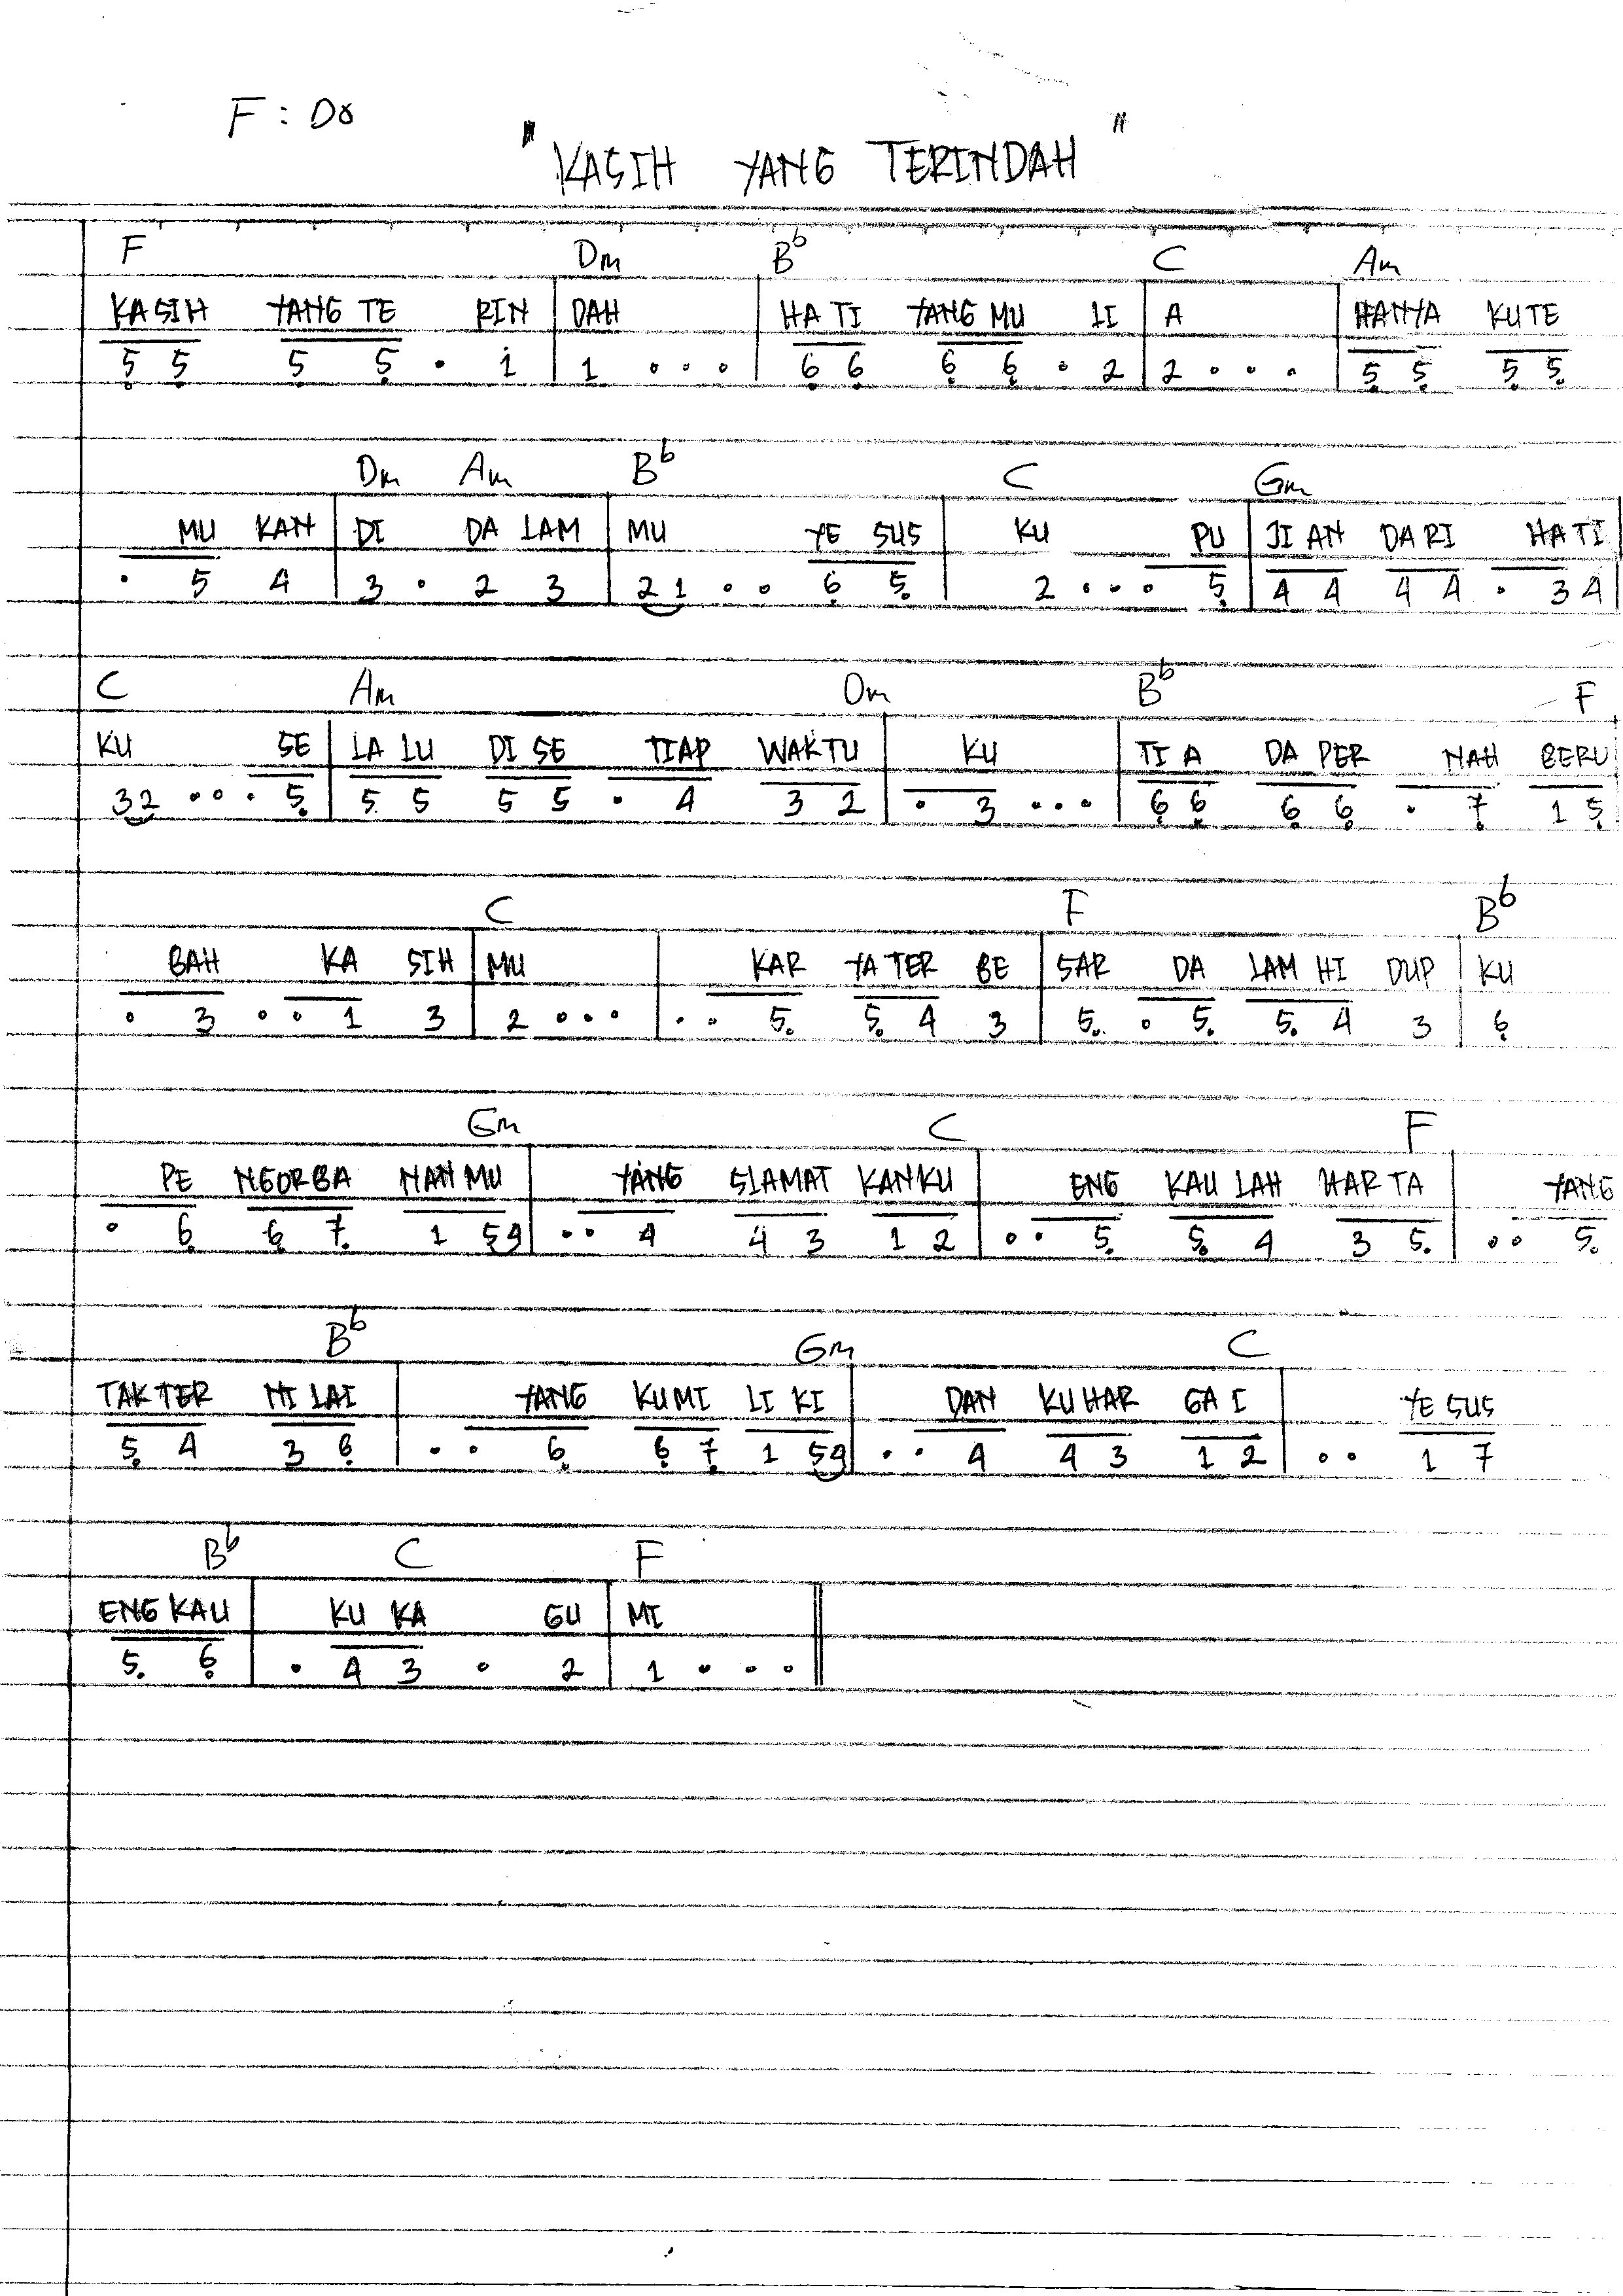 F : Do
" KASIH YANG TERINDAH "
F Dm Bb C Am
KASIH YANG TE RIN | DAH | HA TI YANG MU LI | A | HANYA KUTE
5̣ 5̣ 5̣ 5̣ . 1 | 1 . . . | 6̣ 6̣ 6̣ 6̣ . 2 | 2 . . . | 5̣ 5̣ 5̣ 5̣
Dm Am Bb C Gm
MU KAN | DI DA LAM | MU YE SUS | KU PU | JI AN DARI HA TI
. 5 4 | 3 . 2 3 | 21 . . 6̣ 5̣ | 2 . . . 5̣ | 4 4 4 4 . 3 4 |
C Am Dm Bb F
KU SE | LA LU DI SE TIAP WAKTU | KU | TI A DA PER NAH BERU
32 . . . 5̣ | 5 5 5 5 . 4 3 2 | . 3 . . . | 6̣ 6̣ 6̣ 6̣ . 7̣ 1 5̣
C F Bb
BAH KA SIH | MU | KAR YA TER BE | SAR DA LAM HI DUP | KU
. 3 . . 1 3 | 2 . . . | . . 5̣ 5̣ 4 3 | 5̣ . 5̣ 5̣ 4 3 | 6̣
Gm C F
PE NGORBA NAN MU | YANG SLAMAT KANKU | ENG KAU LAH HAR TA | YANG
. 6̣ 6̣ 7̣ 1 5̣4 | . . 4 4 3 1 2 | . . 5̣ 5̣ 4 3 5̣ | . . 5̣
Bb Gm C
TAK TER NI LAI | YANG KUMI LI KI | DAN KU HAR GA I | YE SUS
5̣ 4 3 6̣ | . . 6̣ 6̣ 7̣ 1 5̣4 | . . 4 4 3 1 2 | . . 1 7
Bb C F
ENG KAU | KU KA GU | MI
5̣ 6̣ | . 4 3 . 2 | 1 . . . ||